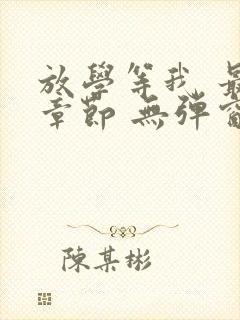 放學等我 最
章節 無彈窗
陳某彬